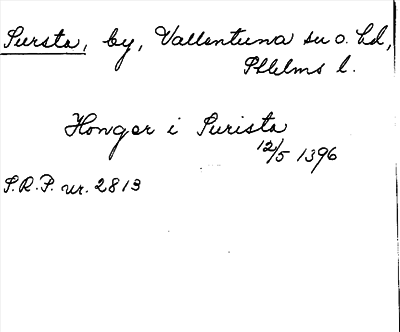 Sursta, by, Vallentuna sn o. hd,
Sthlms l.
Hongar i Surista
12/5 1396
S.R.P. nr. 2813